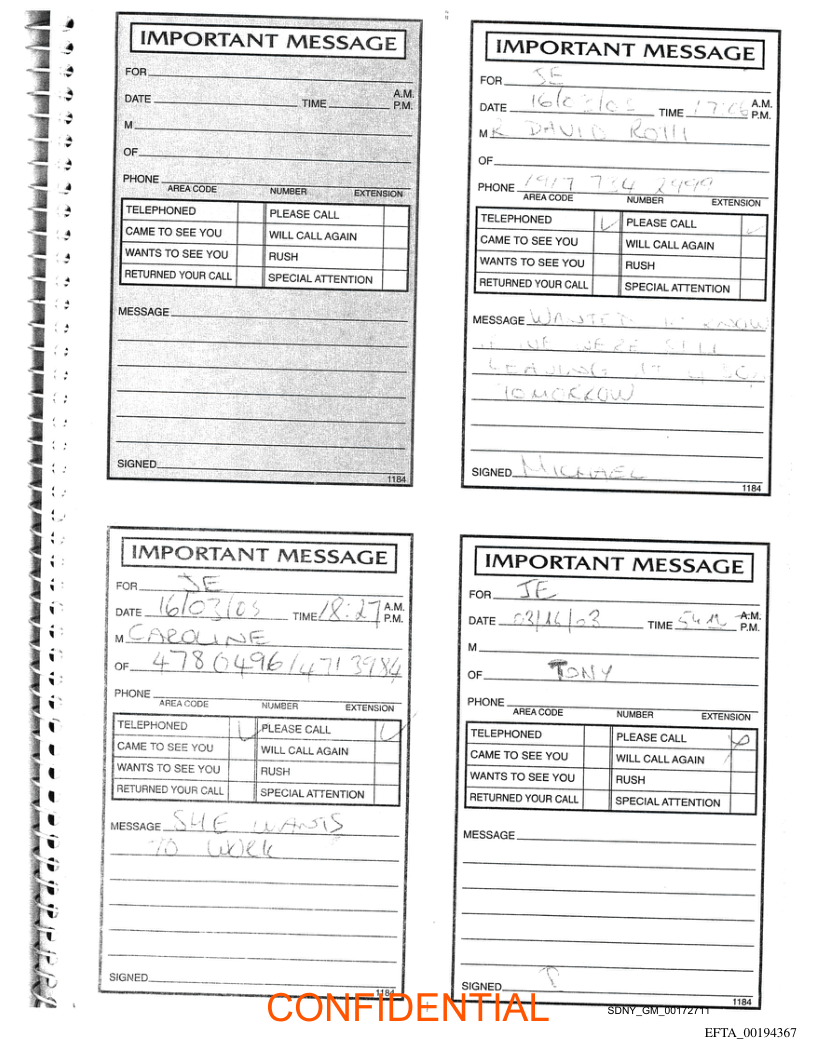 IMPORTANT MESSAGE
FOR
DATE TIME A.M. P.M.
M
OF
PHONE
AREA CODE NUMBER EXTENSION
TELEPHONED PLEASE CALL
CAME TO SEE YOU WILL CALL AGAIN
WANTS TO SEE YOU RUSH
RETURNED YOUR CALL SPECIAL ATTENTION
MESSAGE
SIGNED
1184
IMPORTANT MESSAGE
FOR JE
DATE 16/03/05 TIME A.M. P.M.
MR DAVID
OF
PHONE 1917 734 2999
AREA CODE NUMBER EXTENSION
TELEPHONED PLEASE CALL
CAME TO SEE YOU WILL CALL AGAIN
WANTS TO SEE YOU RUSH
RETURNED YOUR CALL SPECIAL ATTENTION
MESSAGE WANTED TO KNOW
WERE STILL
LEAVING
TOMORROW
SIGNED MICHAEL
1184
IMPORTANT MESSAGE
FOR JE
DATE 16/03/05 TIME 18:27 A.M. P.M.
M CAROLINE
OF 4780496/471 3984
PHONE
AREA CODE NUMBER EXTENSION
TELEPHONED PLEASE CALL
CAME TO SEE YOU WILL CALL AGAIN
WANTS TO SEE YOU RUSH
RETURNED YOUR CALL SPECIAL ATTENTION
MESSAGE SHE WANTS
TO WORK
SIGNED
1184
IMPORTANT MESSAGE
FOR JE
DATE 03/16/03 TIME A.M. P.M.
M
OF TONY
PHONE
AREA CODE NUMBER EXTENSION
TELEPHONED PLEASE CALL
CAME TO SEE YOU WILL CALL AGAIN
WANTS TO SEE YOU RUSH
RETURNED YOUR CALL SPECIAL ATTENTION
MESSAGE
SIGNED
1184
CONFIDENTIAL
SDNY_GM_00172711
EFTA_00194367